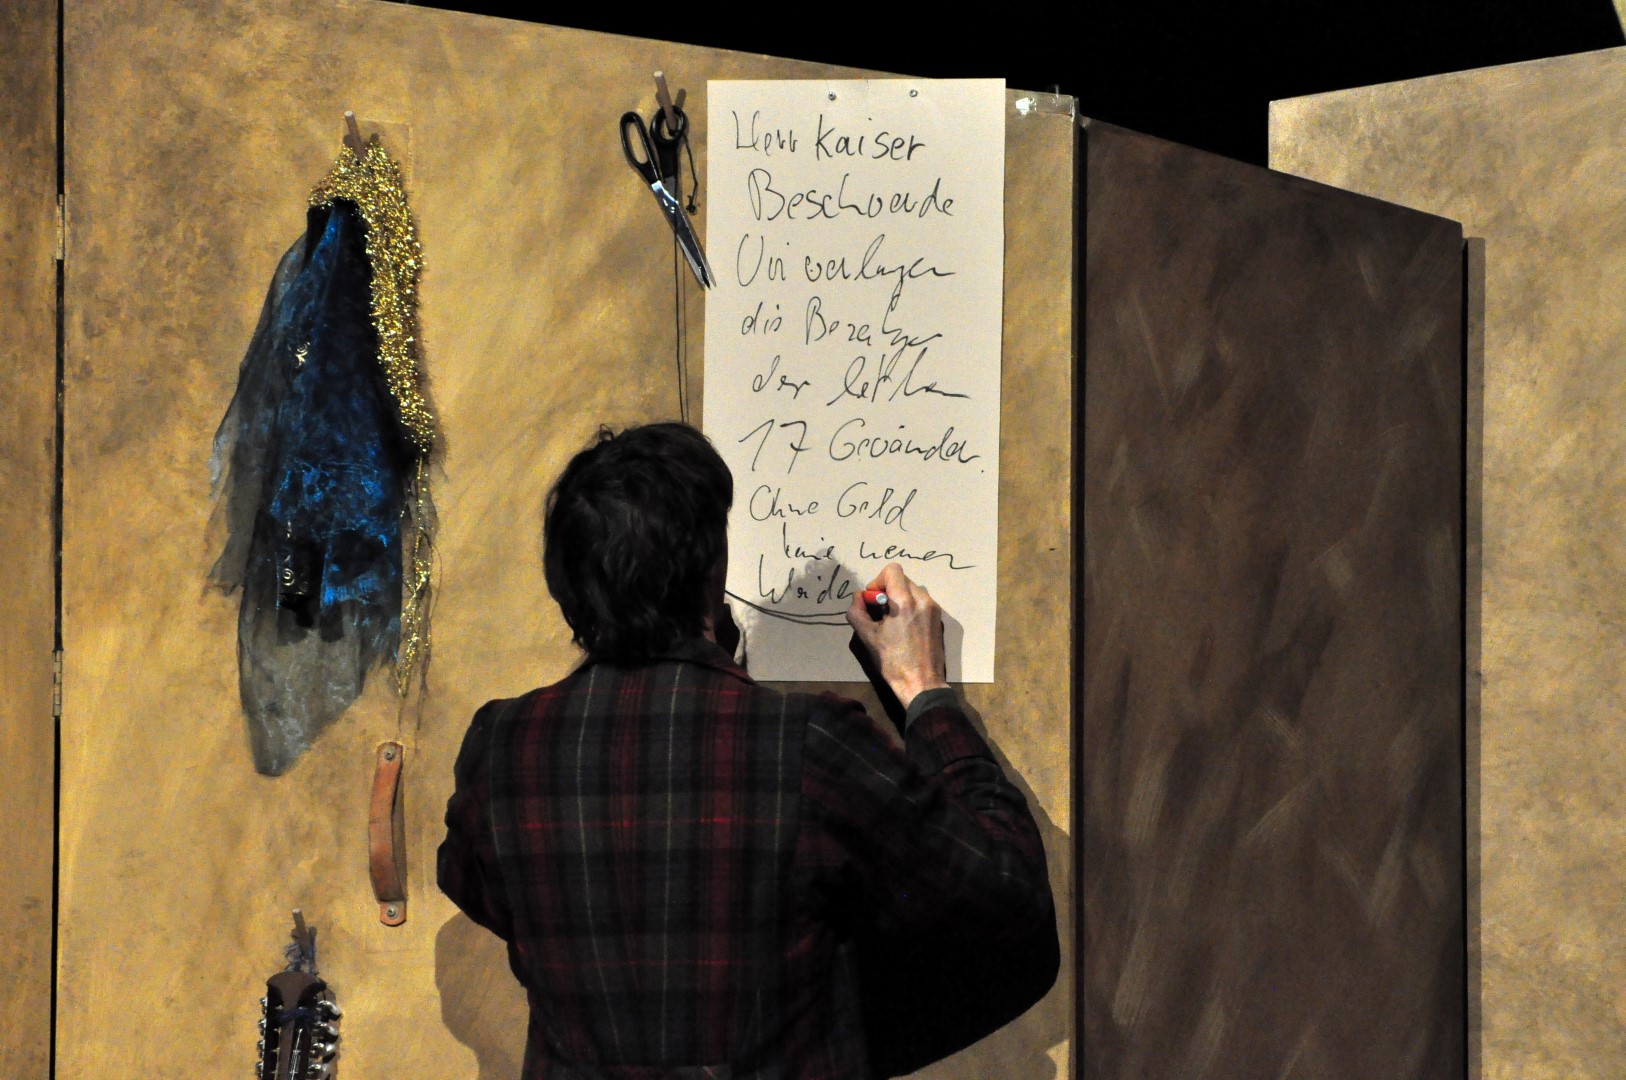 Herr Kaiser
Beschwerde
Wir verlangen
die Bezahlung
der letzten
17 Gewänder.
Ohne Geld
keine neuen
Kleider